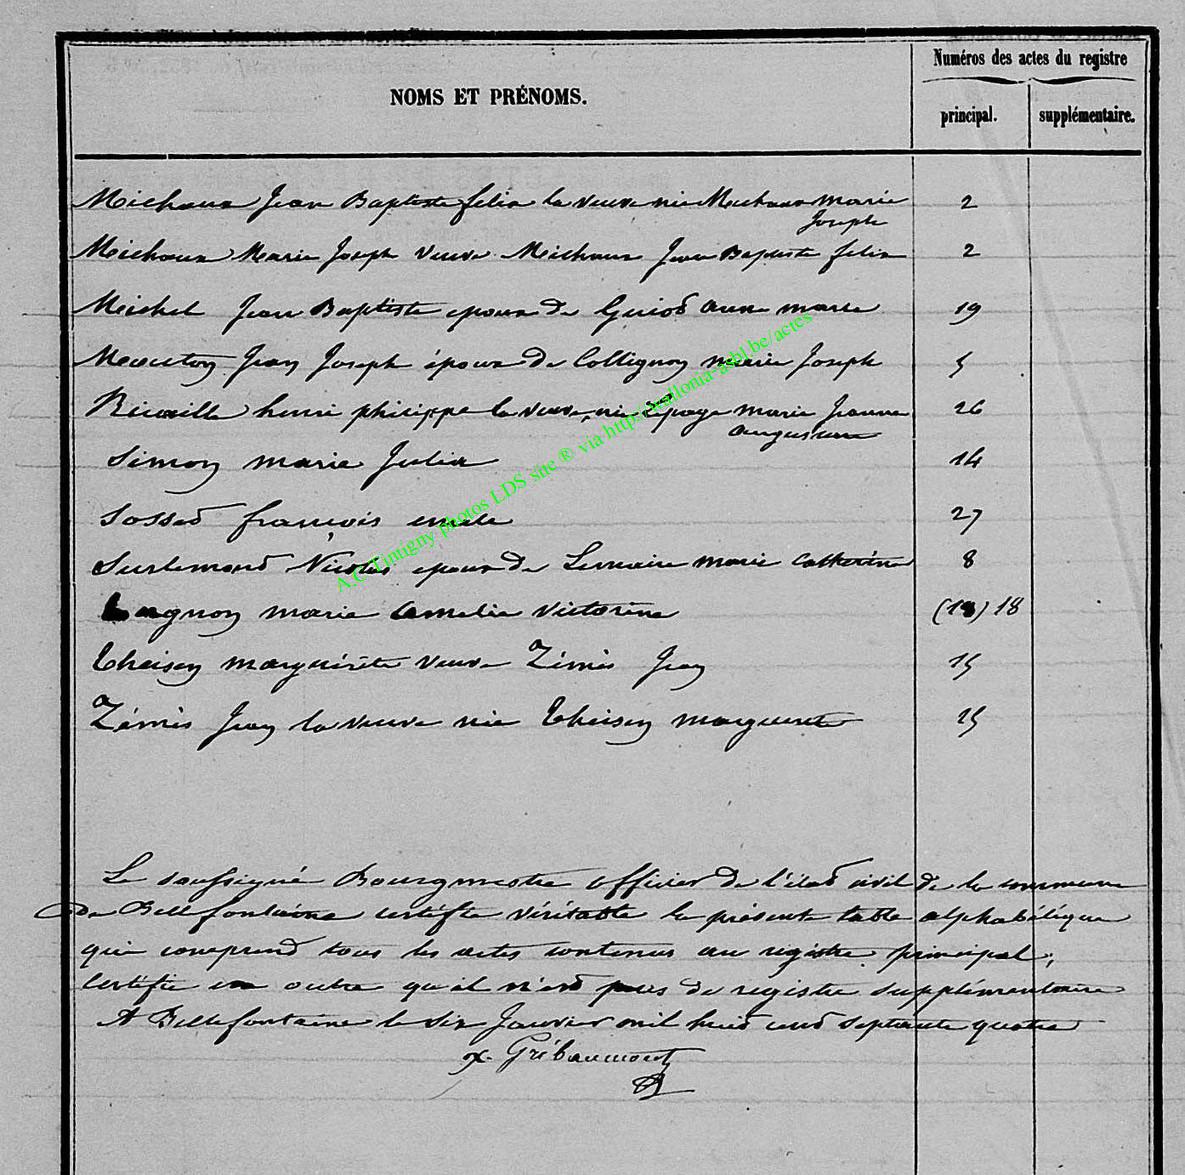 Numéros des actes du registre
NOMS ET PRÉNOMS.
principal. supplémentaire.
Michaux Jean Baptiste felix la veuve née Michaux marie 2
Joseph
Michaux Marie Joseph veuve Michaux Jean Baptiste felix 2
Michel Jean Baptiste epoux de Guiot anne marie 19
Mouton Jean Joseph époux de Collignon marie Joseph 5
Ricaille henri philippe la veuve née Lepage marie Jeanne 26
augustine
Simon marie Julia 14
Sosson françois emile 27
Surlemont Nicolas epoux de Lemaire marie Catherine 8
marie Amelie victorine (18) 18
Theisen marguérite veuve Zémès Jean 15
Zémès Jean la veuve née Theisen marguerite 25
A.C Tintigny photos LDS site ® via http://wallonia-asbl.be/actes
Le soussigné Bourgmestre officier de l'état civil de la commune
de Bellefontaine certifie véritable la présente table alphabétique
qui comprend tous les actes contenus au registre principal,
certifie en outre qu'il n'est pas de registre supplémentaire
A Bellefontaine le six Janvier mil huit cent septante quatre
Gribaumont